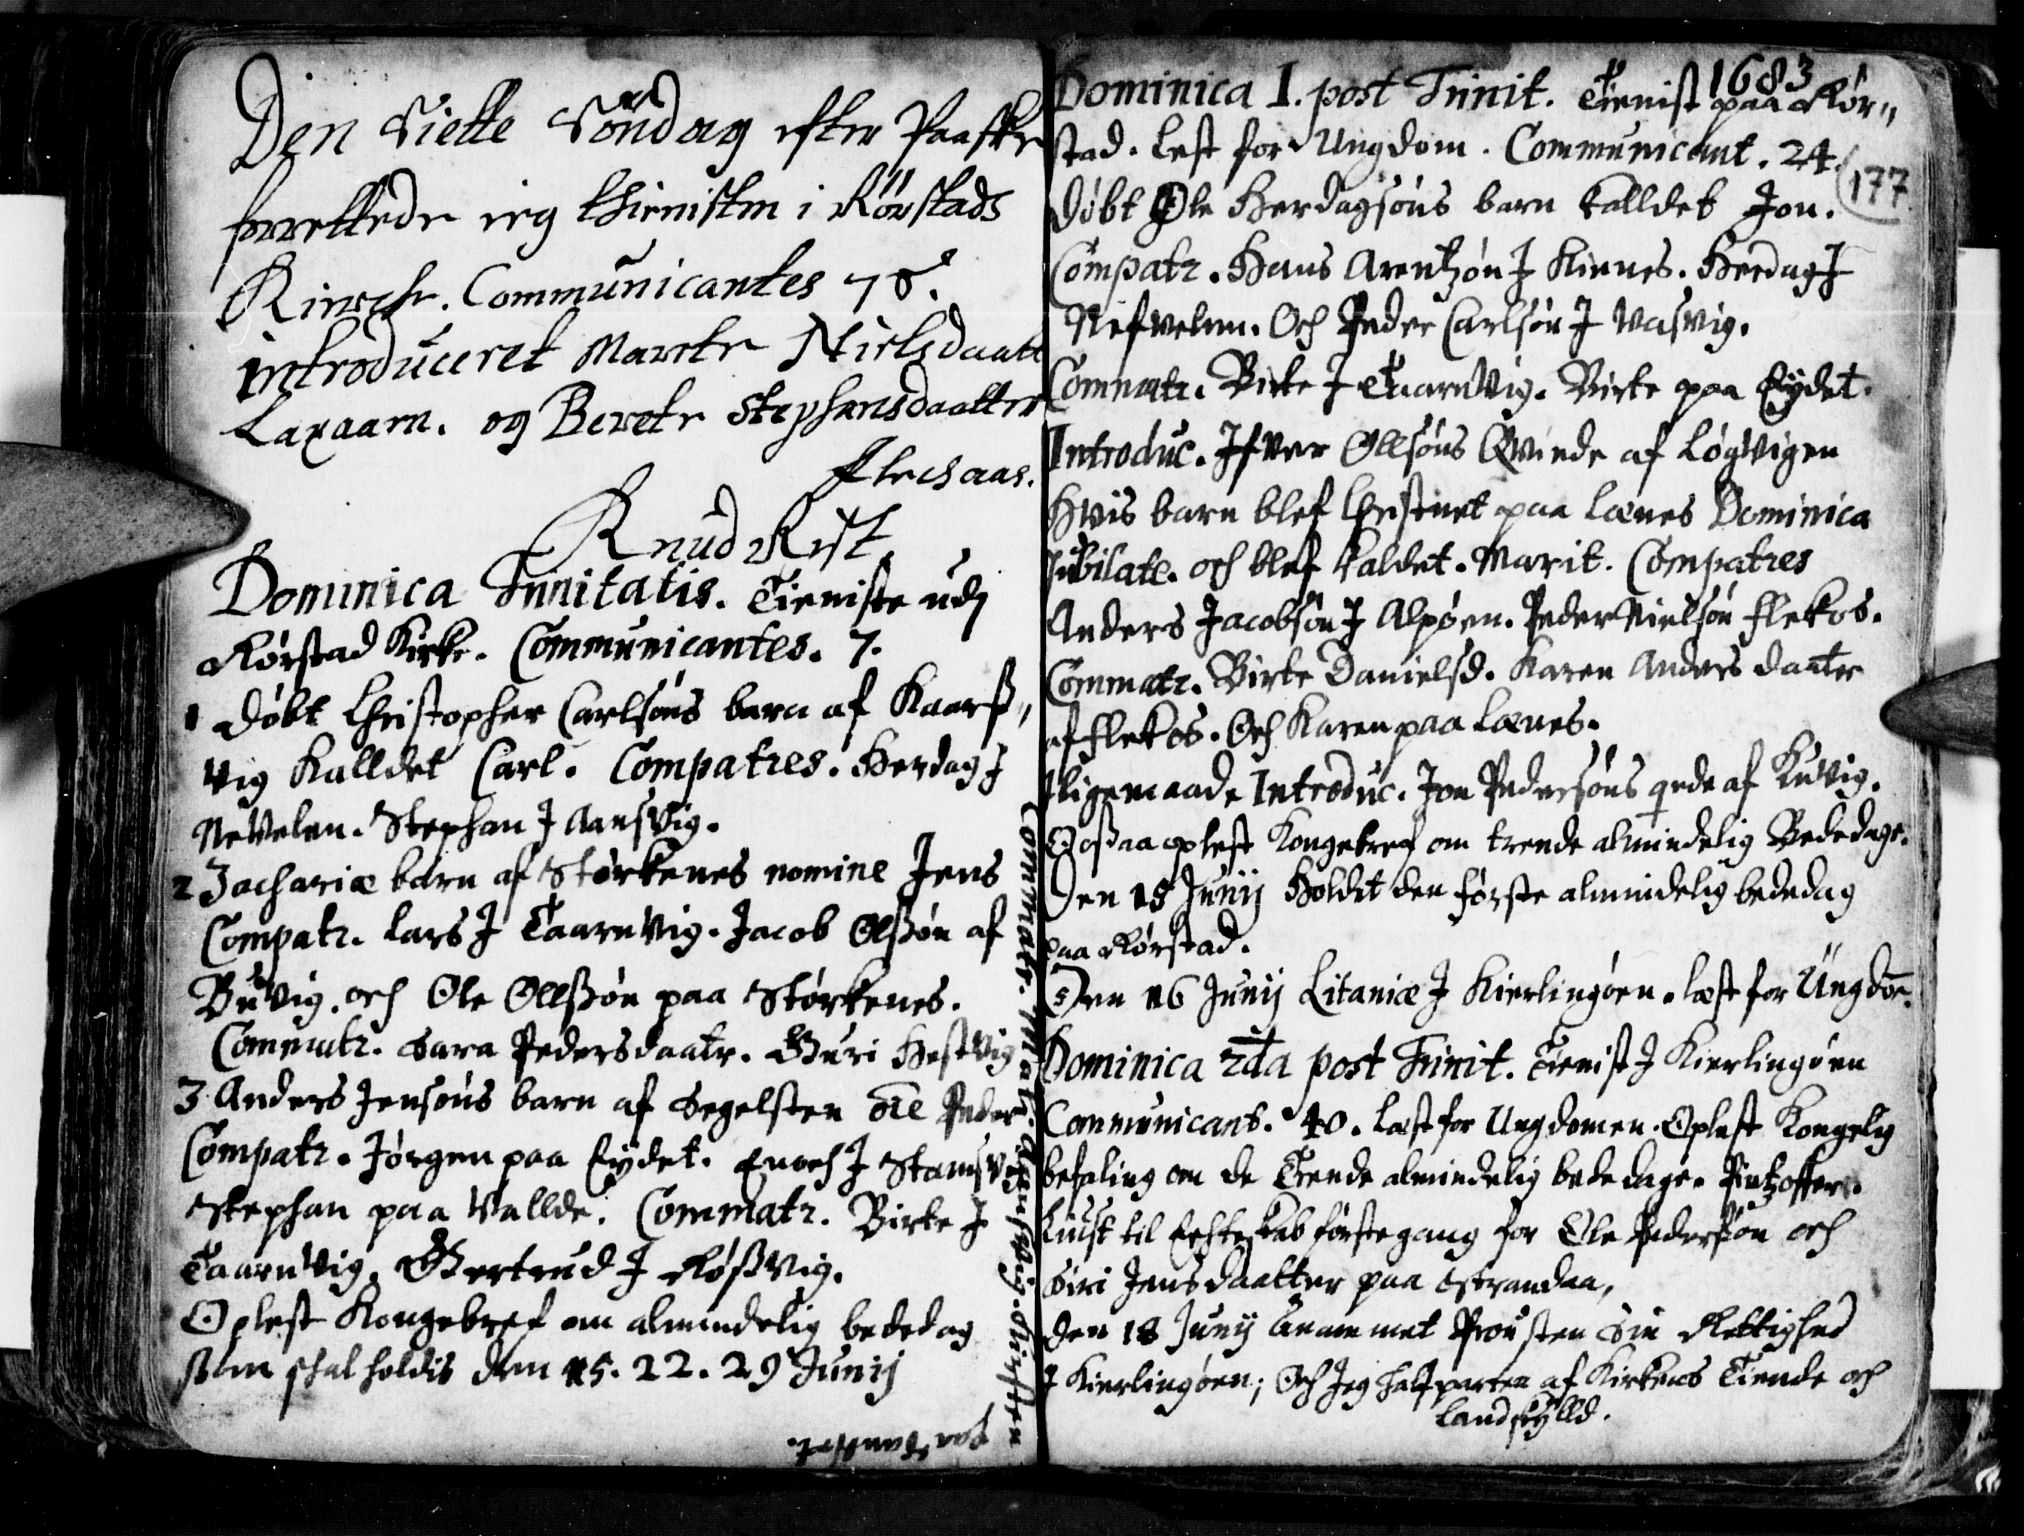 Den Siette Söndag efter Paaske
forrettede ieg thienisten i Rörstads
Kircke. Communicantes 78.
introduceret Marete Nielsdaatt
Laxaaen. og Berete Stephansdaatter
Flechaas.
Knud Rist.
Dominica Trinitatis. Tieniste udj
Rørstad Kirke. Communicantes. 7.
1 Døbt Christopher Carlsøns barn af Kaarß„
vig Kalldet Carl. Compatres. Herdag J
Nevelen. Stephan J Aansvig.
2 Zachariæ barn af Størkenes nomine Jens
Compatr. Lars J Taarnvig. Jacob Olßøn af
Buvig. och Ole Ollßøn paa Størkenes.
Commatr. Sara Pedersdaatr. Guri Hestvig
3 Anders Jensøns barn af Segelsten oĩe Peder
Compatr. Jørgen paa Eydet. Enoch J Stamsvig
Stephan paa Vallde. Commatr. Birte J
Taarnvig. Gertrud J Røßvig.
Oplest Kongebref om almindelig bededag
som skal holdis dem 15. 22. 29 Junij
Commatr.
1683
177
Dominica I. post Trinit. Tienist paa Rør„
stad. Lest for Ungdom. Communicant. 24.
Døbt Ole Herdagsøns barn kalldet Jon.
Compatr. Hans Arentzøn J Kinnes. Herdag J
Nefvelen. Och Peder Carlsøn J Vasvig.
Commatr. Birte J Taarnvig. Birte paa Eydet.
Introduc. Ifver Ollsøns Qvinde af Løgvigen
Hvis barn blef Christnet paa Lænes Dominica
Jubilate. och blef kaldet. Marit. Compatres
Anders Jacobsøn J Alpøen. Peder Nielsøn Flekos.
Commatr. Birte Danielsd. Karen Anders daatr
af Flekos. Och Karen paa Lænes.
Iligemaade Introduc. Jon Pedersøns qvde af Kuvig.
Oßaa oplest Kongebref om trende almindelig Bededage.
Den 15 Junij Holdet den første almindelig bededag
paa Rørstad.
Den 16 Junij Litaniæ J Kierlingøen. læst for Ungdom.
Dominica 2da post Trinit. Tienist J Kierlingøen
Communicant. 40. læst for Ungdomen. Oplest Kongelig
befaling om de Trende almindelig bededage. Pintzoffer.
Liust til Echteskab første gang for Ole Pederßøn och
Siri Jensdaatter paa Strandaa.
Den 18 Junij Anammet Prousten Sin Rettighed
J Kierlingøen; Och Jeg halfparten af Kirkens Tiende och
Landskylld.